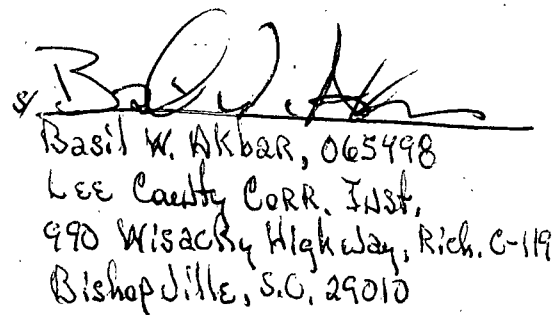 s/ Basil W. Akbar
Basil W. AkbaR, 065498
LEE County CoRR. Inst.
990 Wisacky Highway, Rich. C-119
Bishopville, S.C. 29010